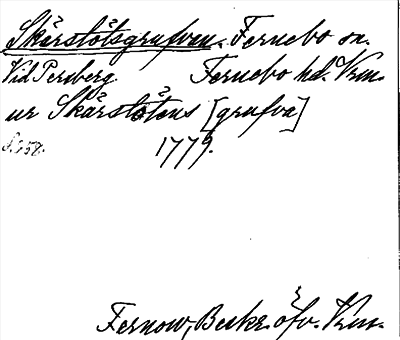 Skårstötsgrufvan. Fernebo sn.
Vid Persberg. Fernebo hd. Vrm.
ur Skårstötens [grufva]
s. 258. 1779.
Fernow, Beskr. öfv. Vrm.